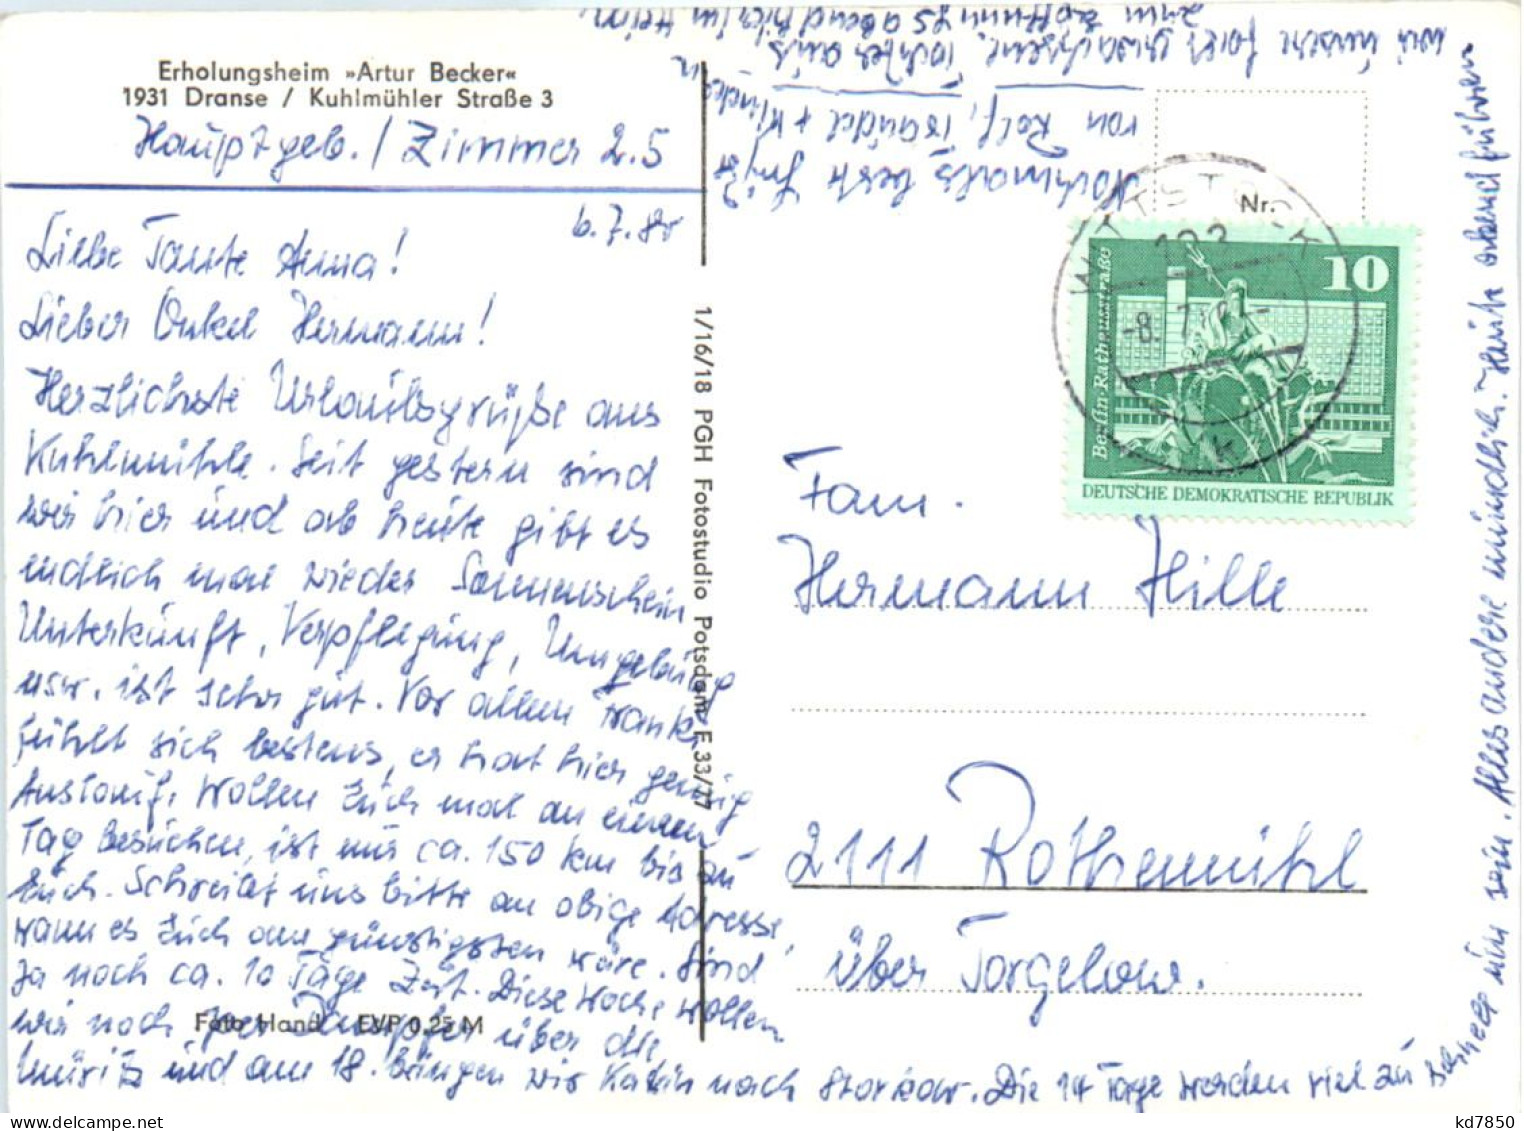 Erholungsheim »Artur Becker«
1931 Dranse / Kuhlmühler Straße 3
Hauptgeb. / Zimmer 2.5
6.7.80
Liebe Tante Anna!
Lieber Onkel Hermann!
Herzlichste Urlaubsgrüße aus
Kuhlmühle. Seit gestern sind
wir hier und ab heute gibt es
endlich mal wieder Sonnenschein
Unterkunft, Verpflegung, Umgebung
usw. ist sehr gut. Vor allem Frank
fühlt sich bestens, er hat hier genug
Auslauf. Wollen Euch mal an einem
Tag besuchen, ist nur ca. 150 km bis zu
Euch. Schreibt uns bitte an obige Adresse,
wann es Euch am günstigsten wäre. Sind
ja noch ca. 10 Tage Zeit. Diese Woche wollen
wir noch per Dampfer über die
Müritz und am 18. bringen wir Katrin nach Storkow. Die 14 Tage werden viel zu
schnell um sein. Alles andere mündlich. Heute abend führen
wir unsere fast erwachsene Tochter aus
zum Eröffnungsabend hier im Heim.
Nochmals beste Grüße
von Rolf, Traudel + Kindern
Foto Handl EVP 0,25 M
1/16/18 PGH Fotostudio Potsdam F 33/77
Nr.
WITTSTOCK
193
-8.7.
k
10
Berlin · Rathausstraße
DEUTSCHE DEMOKRATISCHE REPUBLIK
Fam.
Hermann Hille
2111 Rothemühl
über Torgelow.
kd7850